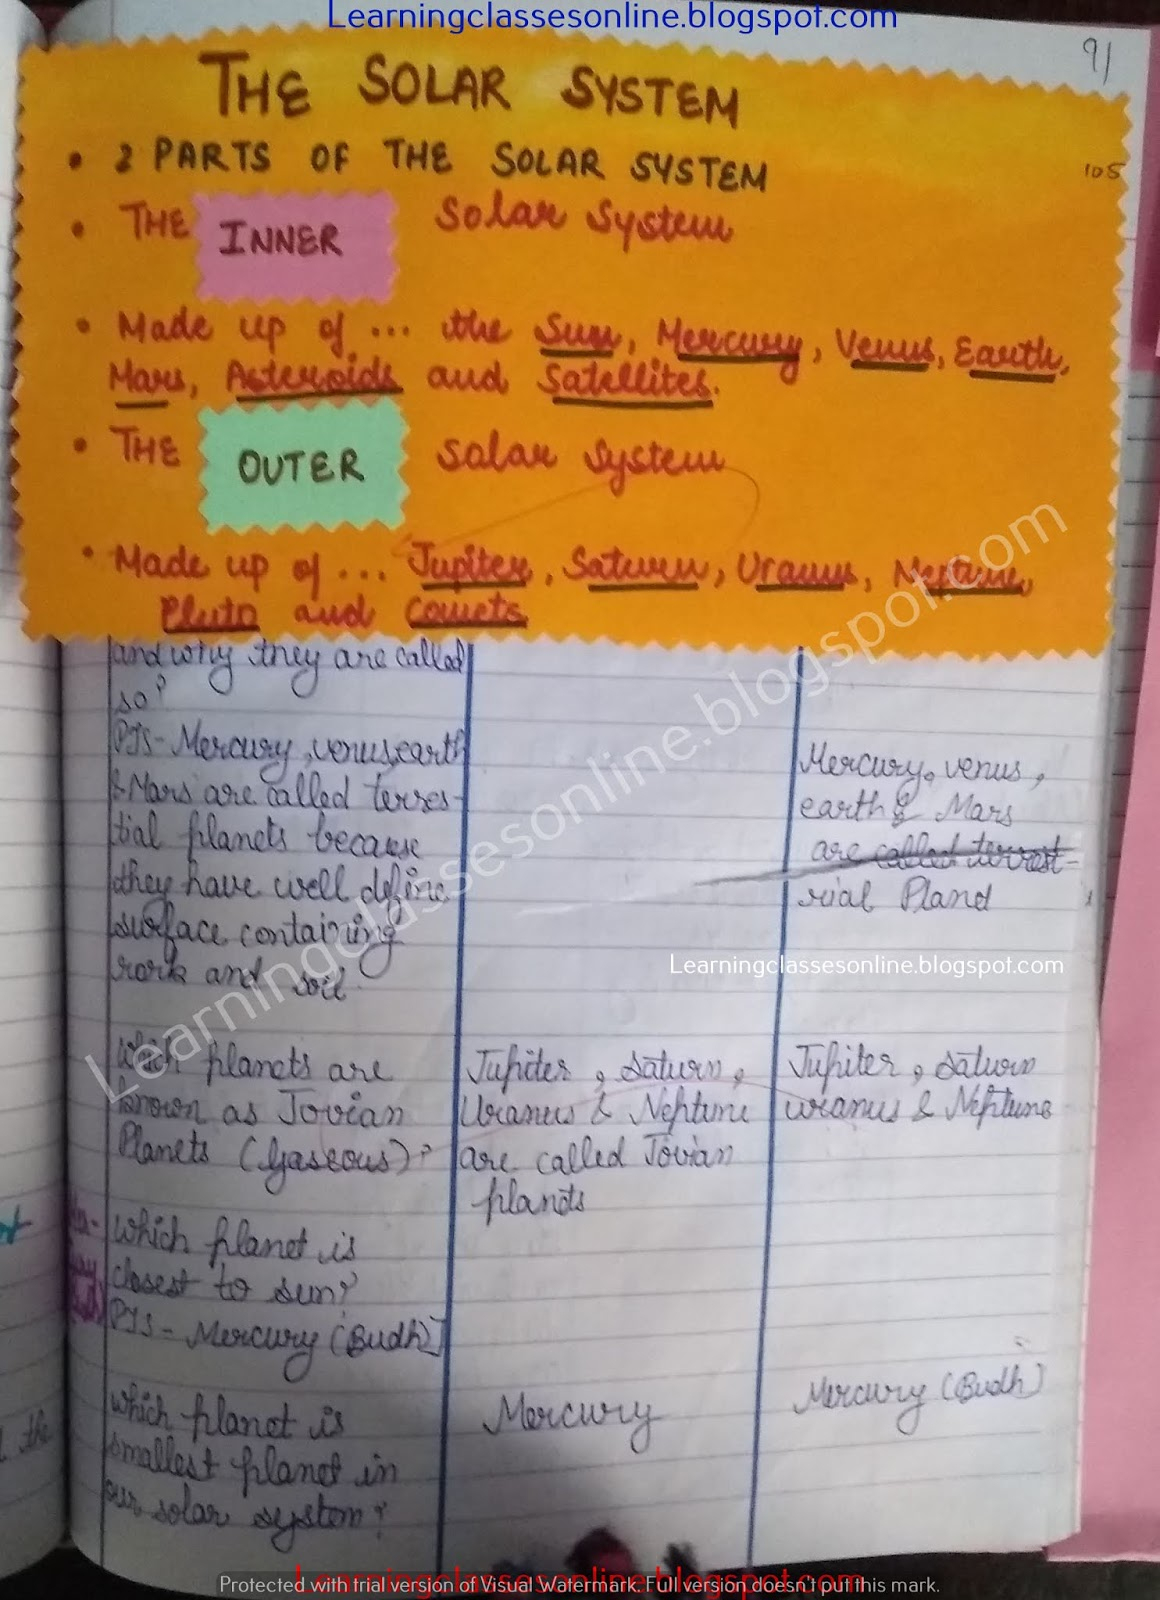 Learningclassesonline.blogspot.com
91
THE SOLAR SYSTEM
• 2 PARTS OF THE SOLAR SYSTEM
105
• THE INNER Solar System
• Made up of ... the Sun, Mercury, Venus, Earth,
Mars, Asteroids and Satellites.
• THE OUTER Solar System
• Made up of ... Jupiter, Saturn, Uranus, Neptune,
Pluto and Comets
and why they are called
so?
PTS - Mercury, venus, earth
& Mars are called terres-
tial planets because
they have well define
surface containing
and soil.
Mercury, venus,
earth & Mars
are called terrest-
rial Pland
Learningclassesonline.blogspot.com
Learningclassesonline.blogspot.com
Which planets are
known as Jovian
Planets (Gaseous)?
Jupiter, Saturn,
Uranus & Neptune
are called Jovian
planets
Jupiter, Saturn
uranus & Neptune
Which planet is
closest to sun?
PTS - Mercury (Budh)
Which planet is
smallest planet in
our solar system?
Mercury
Mercury (Budh)
the
Learningclassesonline.blogspot.com
Protected with trial version of Visual Watermark. Full version doesn't put this mark.